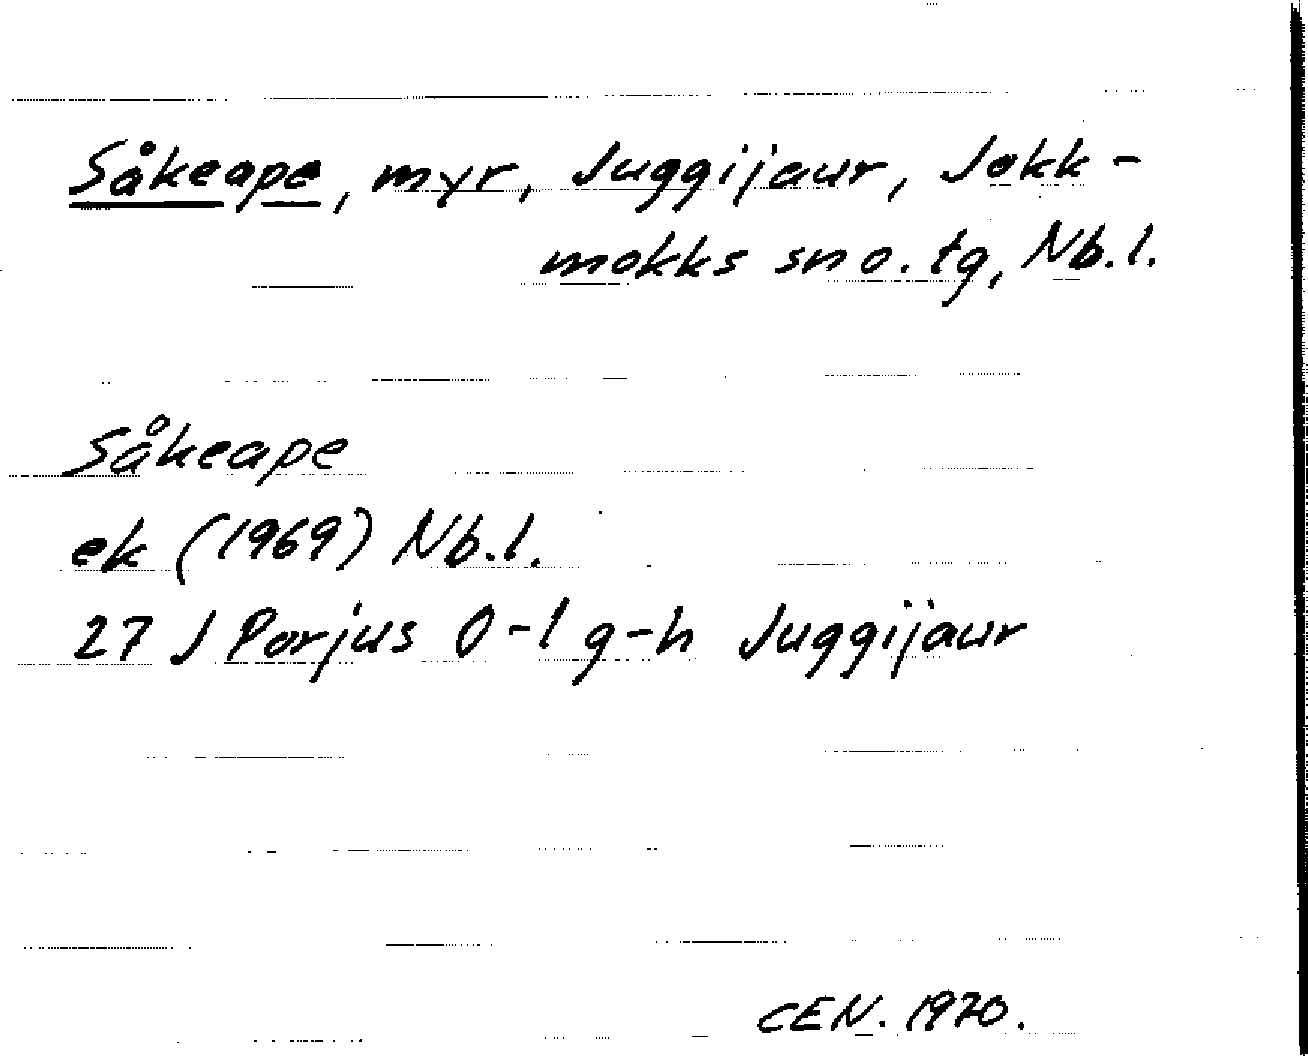 Såkeape, myr, Juggijaur, Jokk-
mokks sno. tg, Nb.l.
Såkeape
ek (1969) Nb.l.
27 J Porjus 0-1 g-h Juggijaur
CEN. 1970.